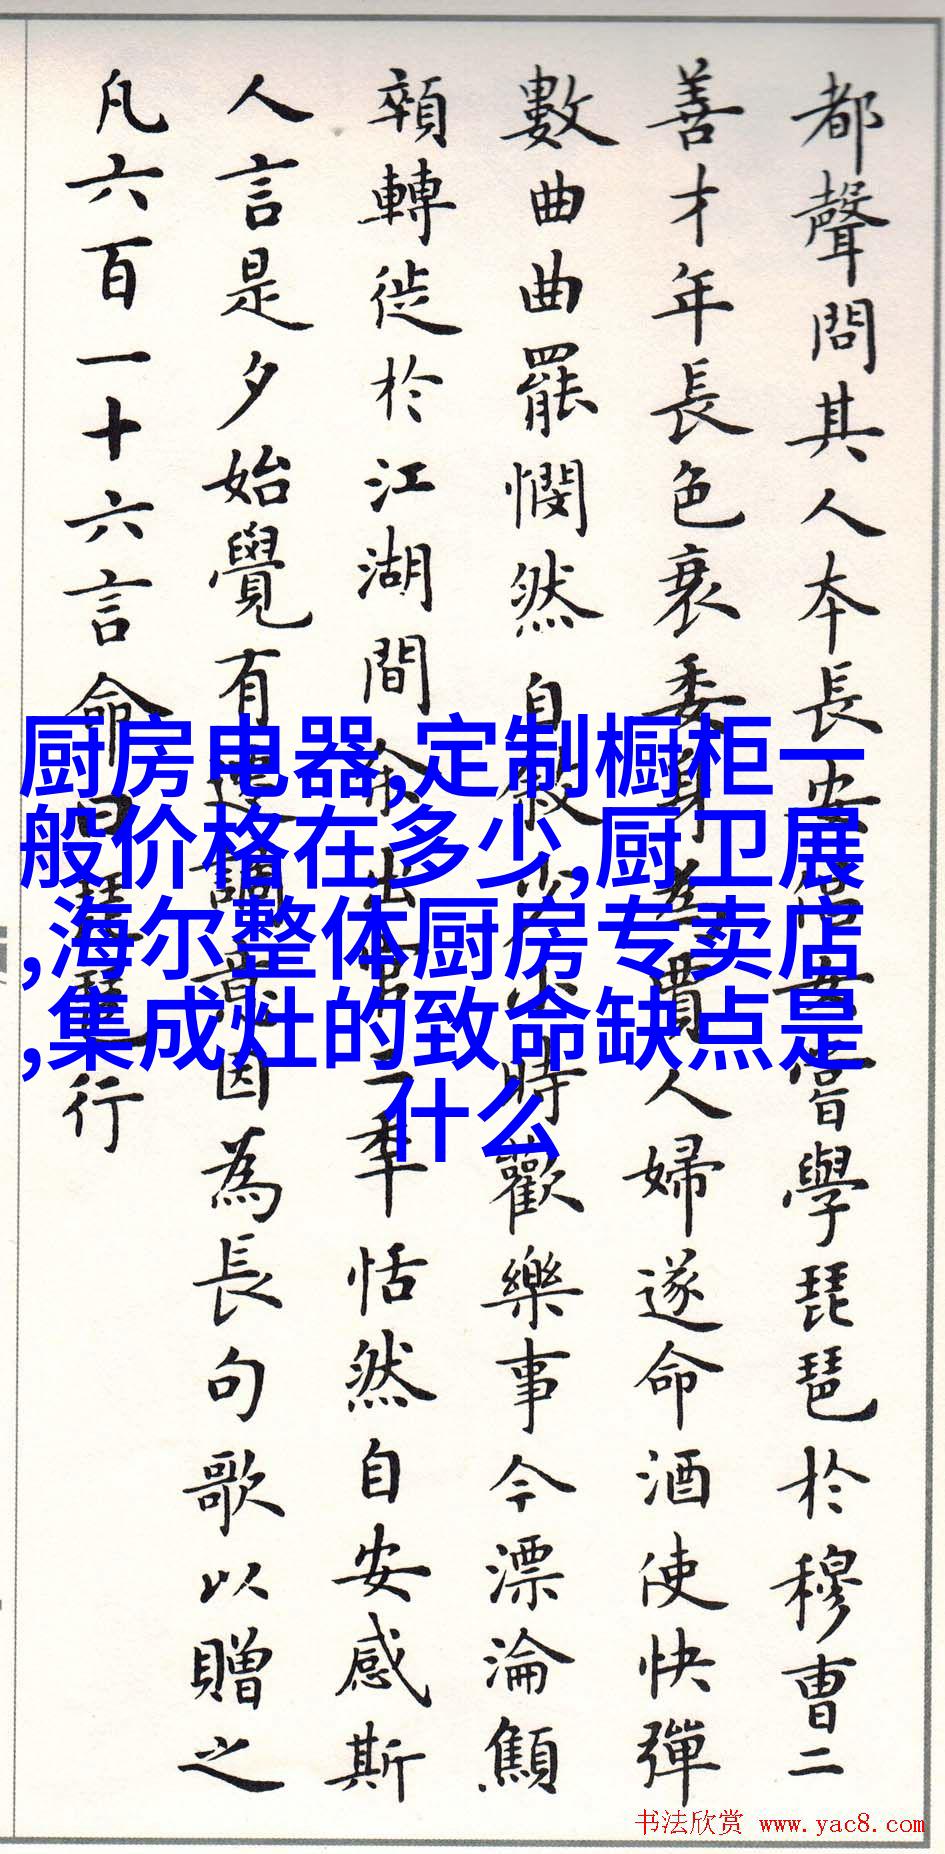 都聲問其人本長安倡女嘗學琵琶於穆曹二
善才年長色衰委身為賈人婦遂命酒使快彈
數曲曲罷憫然自敘少小時歡樂事今漂淪顦
顇轉徙於江湖間余出官二年恬然自安感斯
人言是夕始覺有遷謫意因為長句歌以贈之
凡六百一十六言命曰琵琶行
厨房电器,定制橱柜一
般价格在多少,厨卫展
,海尔整体厨房专卖店
,集成灶的致命缺点是
什么
书法欣赏 www.yac8.com